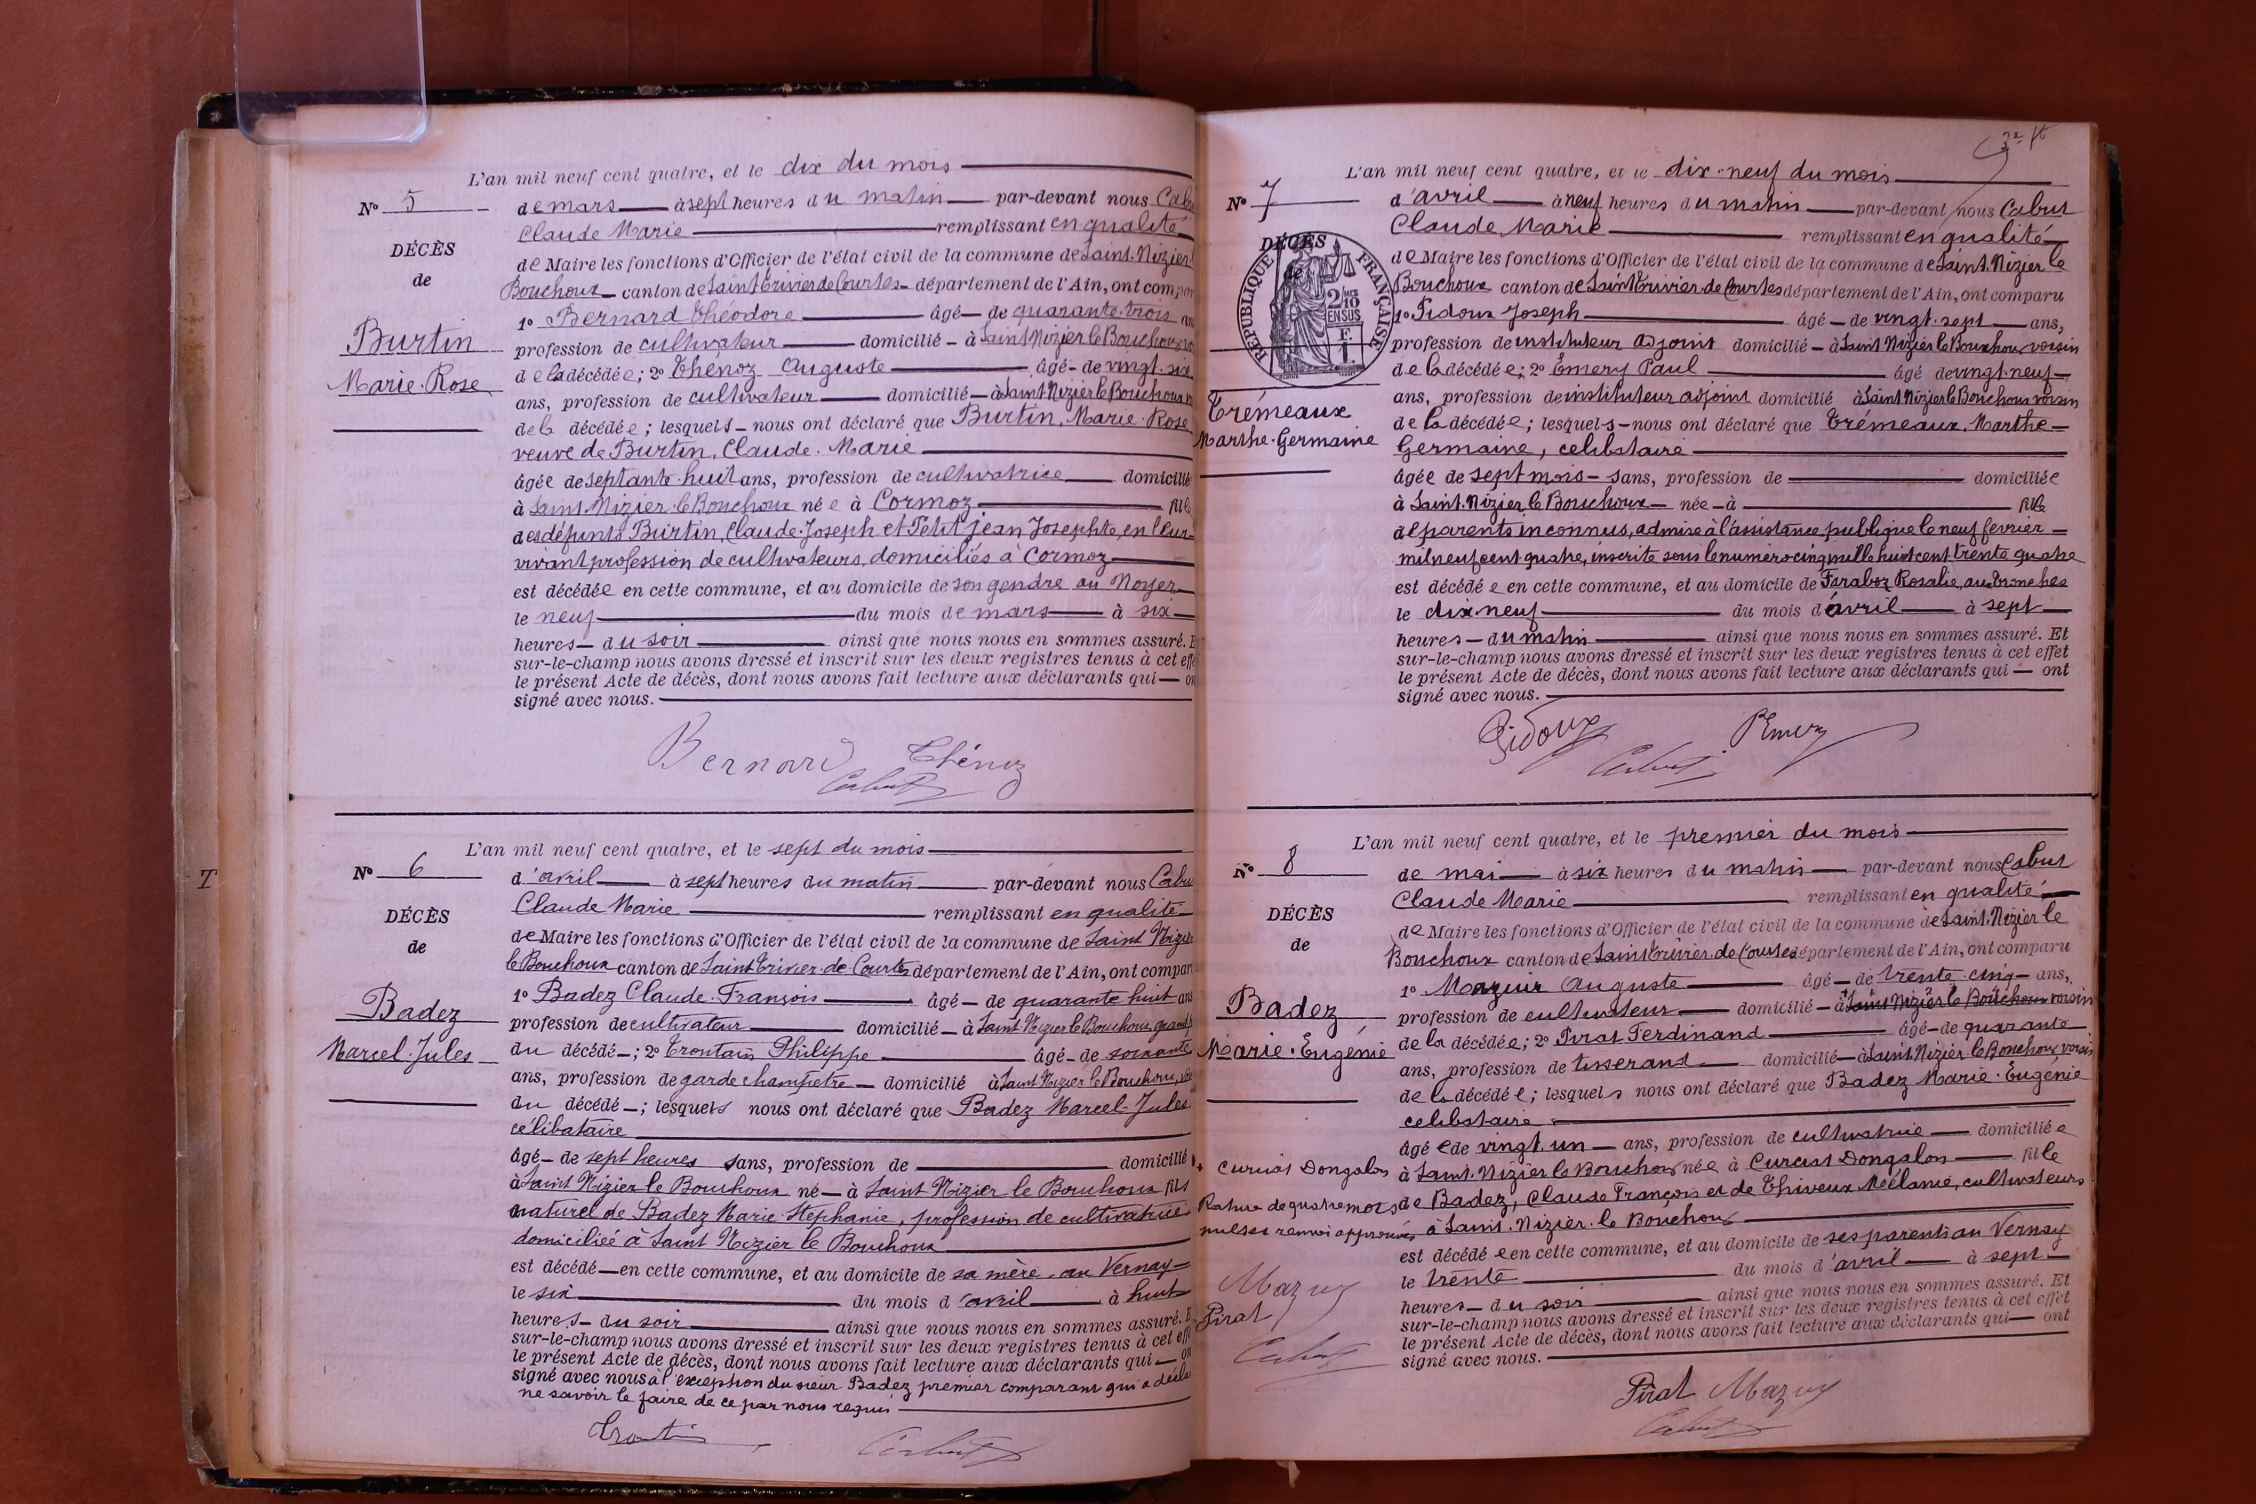 L'an mil neuf cent quatre, et le dix du mois
N° 5
de mars à sept heures du matin par-devant nous Cabu
Claude Marie remplissant en qualité
DÉCÈS
de
de Maire les fonctions d'Officier de l'état civil de la commune de Saint-Nizier
Bouchoux canton de Saint Trivier de Courtes département de l'Ain, ont compar
1° Bernard Théodore âgé de quarante-trois
Burtin
Marie-Rose
profession de cultivateur domicilié à Saint Nizier le Bouchoux
de la décédée; 2° Thénoz Auguste âgé de vingt-six
ans, profession de cultivateur domicilié à Saint-Nizier le Bouchoux
de la décédée; lesquels nous ont déclaré que Burtin, Marie-Rose
veuve de Burtin, Claude-Marie
âgée de septante-huit ans, profession de cultivatrice domicilié
à Saint-Nizier-le Bouchoux née à Cormoz fille
des défunts Burtin, Claude-Joseph et Petit jean Josephte, en leur
vivant profession de cultivateurs, domiciliés à Cormoz
est décédée en cette commune, et au domicile de son gendre au Noyer
le neuf du mois de mars à six
heures du soir ainsi que nous nous en sommes assuré. E
sur-le-champ nous avons dressé et inscrit sur les deux registres tenus à cet effe
le présent Acte de décès, dont nous avons fait lecture aux déclarants qui on
signé avec nous.
Bernard Thénoz
Cabut
L'an mil neuf cent quatre, et le sept du mois
N° 6
d'avril à sept heures du matin par-devant nous Cabu
Claude Marie remplissant en qualité
DÉCÈS
de
de Maire les fonctions d'Officier de l'état civil de la commune de Saint Nizier
le Bouchoux canton de Saint Trivier de Courtes département de l'Ain, ont compar
1° Badez Claude-François âgé de quarante huit ans
Badez
Marcel-Jules
profession de cultivateur domicilié à Saint Nizier le Bouchoux grand
du décédé; 2° Trontain Philippe âgé de soixante
ans, profession de garde champêtre domicilié à Saint Nizier le Bouchoux
du décédé; lesquels nous ont déclaré que Badez Marcel-Jules
célibataire
âgé de sept heures sans, profession de domicilié
à Saint Nizier le Bouchoux né à Saint Nizier le Bouchoux fils
naturel de Badez Marie-Stephanie, profession de cultivatrice
domiciliée à Saint Nizier le Bouchoux
est décédé en cette commune, et au domicile de sa mère au Vernay
le six du mois d'avril à huit
heures du soir ainsi que nous nous en sommes assuré. E
sur-le-champ nous avons dressé et inscrit sur les deux registres tenus à cet eff
le présent Acte de décès, dont nous avons fait lecture aux déclarants qui on
signé avec nous à l'exception du sieur Badez premier comparant qui a décla
ne savoir le faire de ce par nous requis
Trontin Cabut
L'an mil neuf cent quatre, et le dix-neuf du mois
N° 7
d'avril à neuf heures du matin par-devant nous Cabut
Claude Marie remplissant en qualité
DÉCÈS
de
RÉPUBLIQUE FRANÇAISE
2/10 EN SUS
de Maire les fonctions d'Officier de l'état civil de la commune de Saint-Nizier le
Bouchoux canton de Saint Trivier-de Courtes département de l'Ain, ont comparu
1° Pidoux Joseph âgé de vingt-sept ans,
profession de instituteur adjoint domicilié à Saint Nizier le Bouchoux voisin
de la décédée; 2° Emery Paul âgé de vingt-neuf
Trémeaux
Marthe-Germaine
ans, profession de instituteur adjoint domicilié à Saint Nizier le Bouchoux voisin
de la décédée; lesquels nous ont déclaré que Trémeaux, Marthe
Germaine, celibataire
âgée de sept mois sans, profession de domiciliée
à Saint-Nizier le Bouchoux née à fille
de parents inconnus, admise à l'assistance publique le neuf fevrier
mil neuf cent quatre, inscrite sous le numéro cinq mille huit cent trente quatre
est décédée en cette commune, et au domicile de Faraboz Rosalie, aux Bronches
le dix neuf du mois d'avril à sept
heures du matin ainsi que nous nous en sommes assuré. Et
sur-le-champ nous avons dressé et inscrit sur les deux registres tenus à cet effet
le présent Acte de décès, dont nous avons fait lecture aux déclarants qui ont
signé avec nous.
Pidoux PEmery
Cabut
L'an mil neuf cent quatre, et le premier du mois
N° 8
de mai à six heures du matin par-devant nous Cabut
Claude Marie remplissant en qualité
DÉCÈS
de
de Maire les fonctions d'Officier de l'état civil de la commune de Saint-Nizier le
Bouchoux canton de Saint Trivier-de Courtes département de l'Ain, ont comparu
1° Mazuir Auguste âgé de trente-cinq ans,
Badez
Marie-Eugénie
profession de cultivateur domicilié à Saint Nizier le Bouchoux voisin
de la décédée; 2° Pirat Ferdinand âgé de quarante
ans, profession de tisserand domicilié à Saint Nizier le Bouchoux voisin
de la décédée; lesquels nous ont déclaré que Badez Marie-Eugénie
celibataire
âgée de vingt un ans, profession de cultivatrice domiciliée
à Saint-Nizier le Bouchoux née à Curciat Dongalon fille
de Badez, Claude François et de Thiveux Mélanie, cultivateurs
à Saint-Nizier-le Bouchoux
Curciat Dongalon
Rature de quatre mots
nulses renvoi approuvés
Mazuy
Pirat
Cabut
est décédée en cette commune, et au domicile de ses parents au Vernay
le trente du mois d'avril à sept
heures du soir ainsi que nous nous en sommes assuré. Et
sur-le-champ nous avons dressé et inscrit sur les deux registres tenus à cet effet
le présent Acte de décès, dont nous avons fait lecture aux déclarants qui ont
signé avec nous.
Pirat Mazuy
Cabut
T